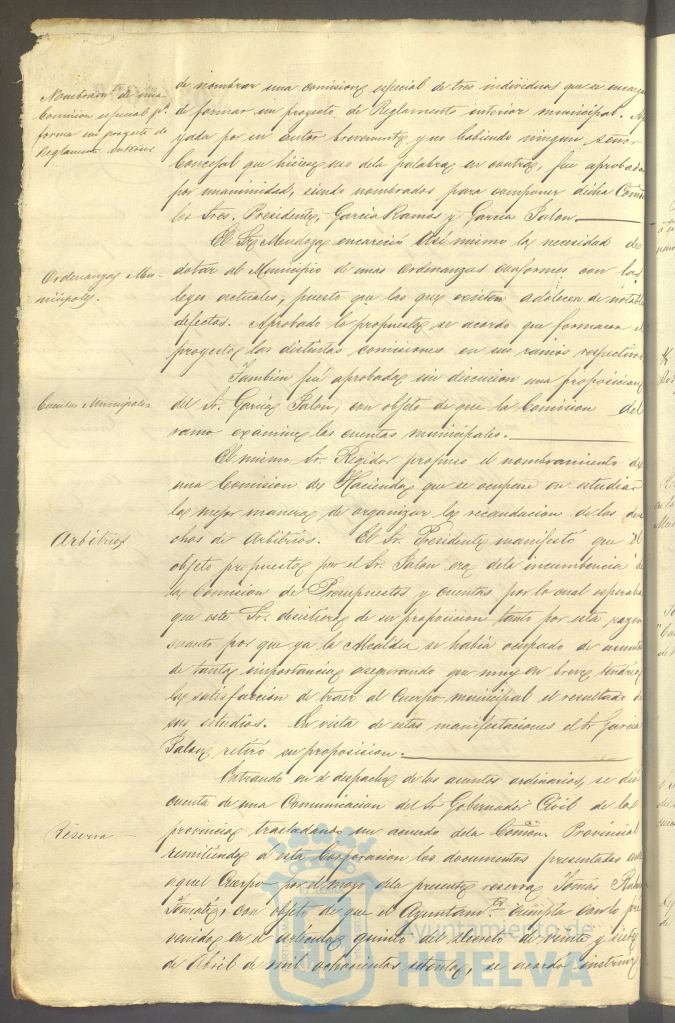 de nombrar una comision especial de tres individuos que se encargu
Nombram.to de una
Comision especial p.a
formar un proyecto de
Reglamento interior
de formar un proyecto de Reglamento interior municipal. Apo
yada por su autor brevemente y no habiendo ningun señor
Concejal que hiciera uso de la palabra en contra, fué aprobada
por unanimidad, siendo nombrados para componer dicha Comon
los Sres. Presidente, Garcia Ramos y Garcia Palon.
El Sr. Mendoza encareció así mismo la necesidad de
Ordenanzas Mu-
nicipales.
dotar al Municipio de unas Ordenanzas conformes con las
leyes actuales, puesto que las que existen adolecen de notable
defectos. Aprobado lo propuesto se acordó que formaran el
proyecto las distintas comisiones en sus ramos respectivos
Tambien fué aprobada sin discucion una proposicion
Cuentas Municipales
del Sr. Garcia Palon, con objeto de que la Comision del
ramo examine las cuentas municipales.
El mismo Sr. Regidor propuso el nombramiento de
una Comision de Hacienda que se ocupase en estudiar
la mejor manera de organizar la recaudacion de los dere
Arbitrios
chos de Arbitrios. El Sr. Presidente manifestó que el
objeto propuesto por el Sr. Palon era de la incumbencia de
la Comision de Presupuestos y cuentas por lo cual esperaba
que este Sr. desistiera de su proposicion tanto por esta razon
cuanto por que ya la Alcaldia se habia ocupado de asunto
de tanta importancia asegurando que muy en breve tendria
la satisfaccion de traer al Cuerpo municipal el resultado de
sus estudios. En vista de estas manifestaciones el Sr Garcia
Palon retiró su proposicion.
Entrando en el despacho de los asuntos ordinarios, se dió
cuenta de una Comunicacion del Sr Gobernador Civil de la
Reserva
provincia trasladando un acuerdo de la Comon. Provincial
remitiendo á esta Corporacion los documentos presentados ante
aquel Cuerpo por el mozo de la presente reserva Tomás
con objeto de que el Ayuntam.to cumpla con lo pre
venido en el articulo quinto del decreto de veinte y siete
de Abril de mil ochocientos setenta, se acordó instruir
Ayuntamiento de
HUELVA